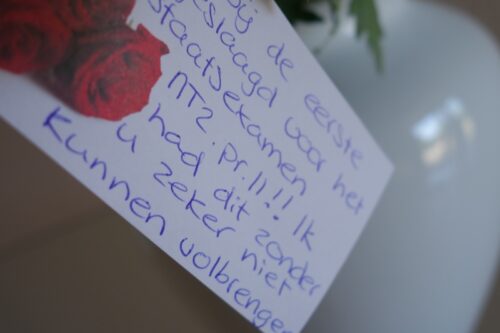 bij de eerste
geslaagd voor het
staatsexamen
NT2. Pr.II!! Ik
had dit zonder
u zeker niet
kunnen volbrengen